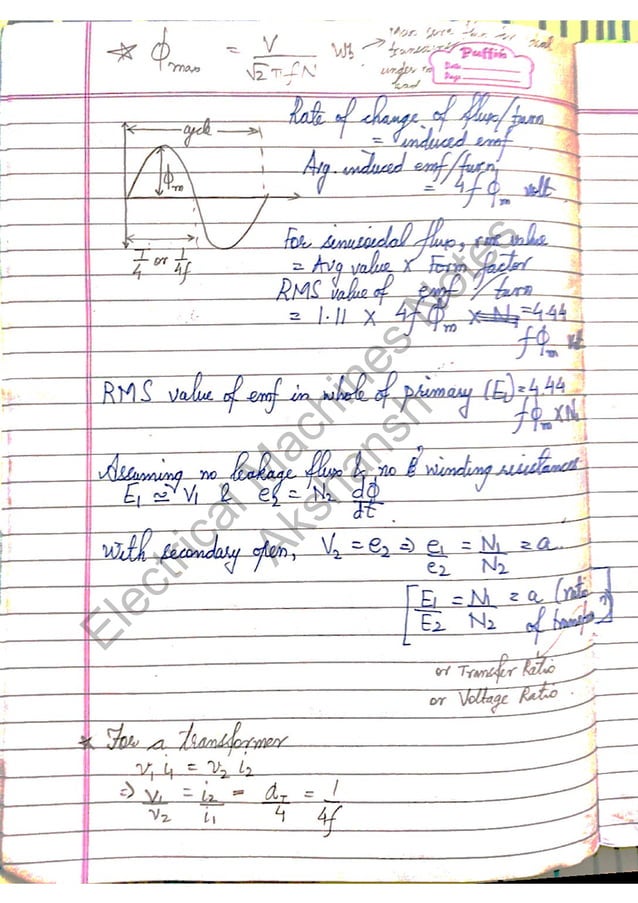 * Φmax = V / √2 π f N Wb →
under no
load
Puffin
Date
Page
cycle
Φm
1/4 or 1/4f
Rate of change of flux/turn
= induced emf
Avg. induced emf/turn
= 4f Φm volt
For sinusoidal flux, rms value
= Avg value × Form factor
RMS value of emf/turn
= 1.11 × 4f Φm × N1 = 4.44
f Φm
RMS value of emf in whole of primary (E1) = 4.44
f Φm × N1
Assuming no leakage flux & no winding resistances
E1 ≅ V1 & e2 = N2 dΦ/dt
With secondary open, V2 = e2 ⇒ e1/e2 = N1/N2 = a
[E1/E2 = N1/N2 = a (ratio
of transfor
or Transfer Ratio
or Voltage Ratio
* For a transformer
v1 i1 = v2 i2
⇒ v1/v2 = i2/i1 = aT/4 = 1/4f
Electrical Machines Notes
Akshansh